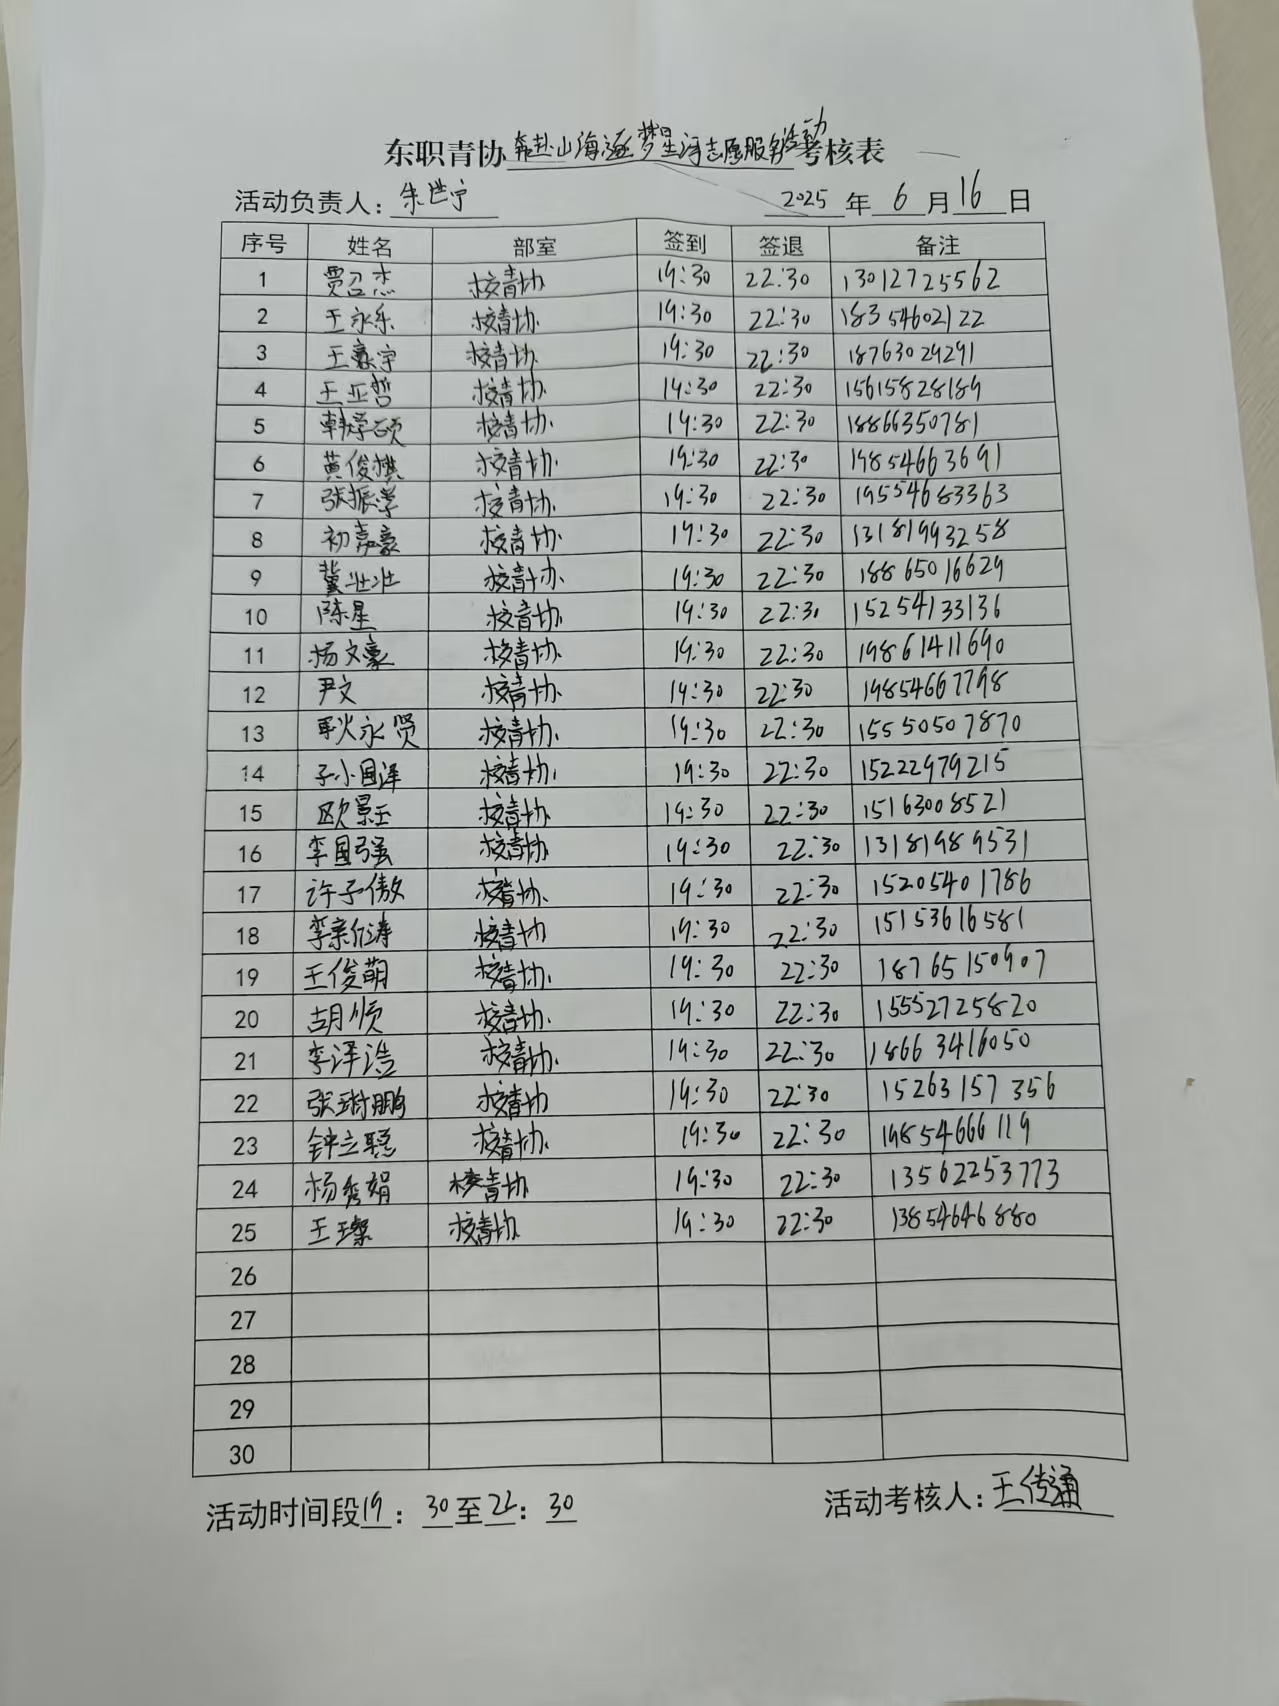 东职青协奔赴山海逐梦星河志愿服务活动考核表
活动负责人：朱世宁 2025年6月16日
序号 姓名 部室 签到 签退 备注
1 贾召杰 校青协 19:30 22:30 13012725562
2 王永乐 校青协 19:30 22:30 18354602122
3 王豪宇 校青协 19:30 22:30 18763029291
4 王亚哲 校青协 19:30 22:30 15615828189
5 韩学硕 校青协 19:30 22:30 18866350781
6 黄俊棋 校青协 19:30 22:30 19854663691
7 张振学 校青协 19:30 22:30 19554683363
8 初嘉豪 校青协 19:30 22:30 13181993258
9 冀壮壮 校青协 19:30 22:30 18865016629
10 陈星 校青协 19:30 22:30 15254133136
11 杨文豪 校青协 19:30 22:30 19861411690
12 尹文 校青协 19:30 22:30 19854667798
13 耿永贤 校青协 19:30 22:30 15550507870
14 孙国泽 校青协 19:30 22:30 15222979215
15 欧景玉 校青协 19:30 22:30 15163008521
16 李国强 校青协 19:30 22:30 13181989531
17 许子傲 校青协 19:30 22:30 15205401786
18 李亲涛 校青协 19:30 22:30 15153616581
19 王俊萌 校青协 19:30 22:30 18765150907
20 胡顺 校青协 19:30 22:30 15552725820
21 李泽浩 校青协 19:30 22:30 18663416050
22 张树鹏 校青协 19:30 22:30 15263157356
23 钟立聪 校青协 19:30 22:30 19854666119
24 杨秀娟 校青协 19:30 22:30 13562253773
25 王璨 校青协 19:30 22:30 13854646880
26
27
28
29
30
活动时间段19：30至22：30 活动考核人：王传通